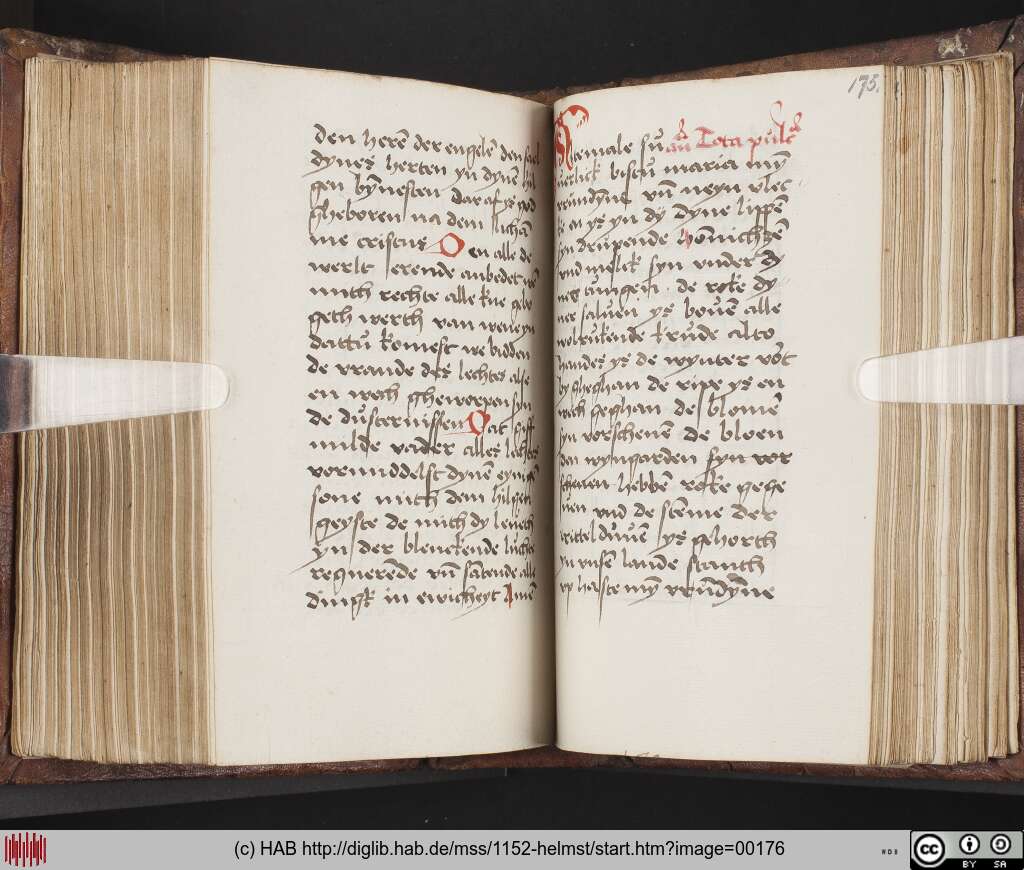 den herē der engelē den sael
dynes herten yn dynē hil
gen bȳnesten dar af ys pod
gheboren na dem lichā
me cristus Den alle de
werlt erende anbedet vn̄
mith rechte alle kne gebo
geth werth van weme yn
dattu komest we bidden
de vrande des lechtes alse
en woch gheworpen syn
de dusternissen Dat
milde vader alles lechtes
vormiddelst dynē eynigē
sone mith dem hilgen
geyste de mith dy leuech
yn der blenckende luchte
regnerēde vn̄ sātende alle
dingk in ewicheyt Amē
175.
Temale su an̄ Tota pulc
uerlick bistu maria mȳ
vrundȳne vn̄ neyn vlec
ke an ys yn dy dyne lippē
syn drupende hōnichsē
vnd melck syn vnder dy
ner tungen de roke dy
ner saluen ys bouē alle
wolrukende krude alto
handes ys de wynter vōt
by gheghan de ripe ys en
wech geghan de blomē
syn vorschenē de bloen
den wyngarden syn vor
schenen hebbē roke gege
uen vnd de stēme der
tritteldūuē ys gehorth
yn vnsē lande stanth
vp haste mȳ vrūdȳne
(c) HAB http://diglib.hab.de/mss/1152-helmst/start.htm?image=00176
WDB
cc
BY SA